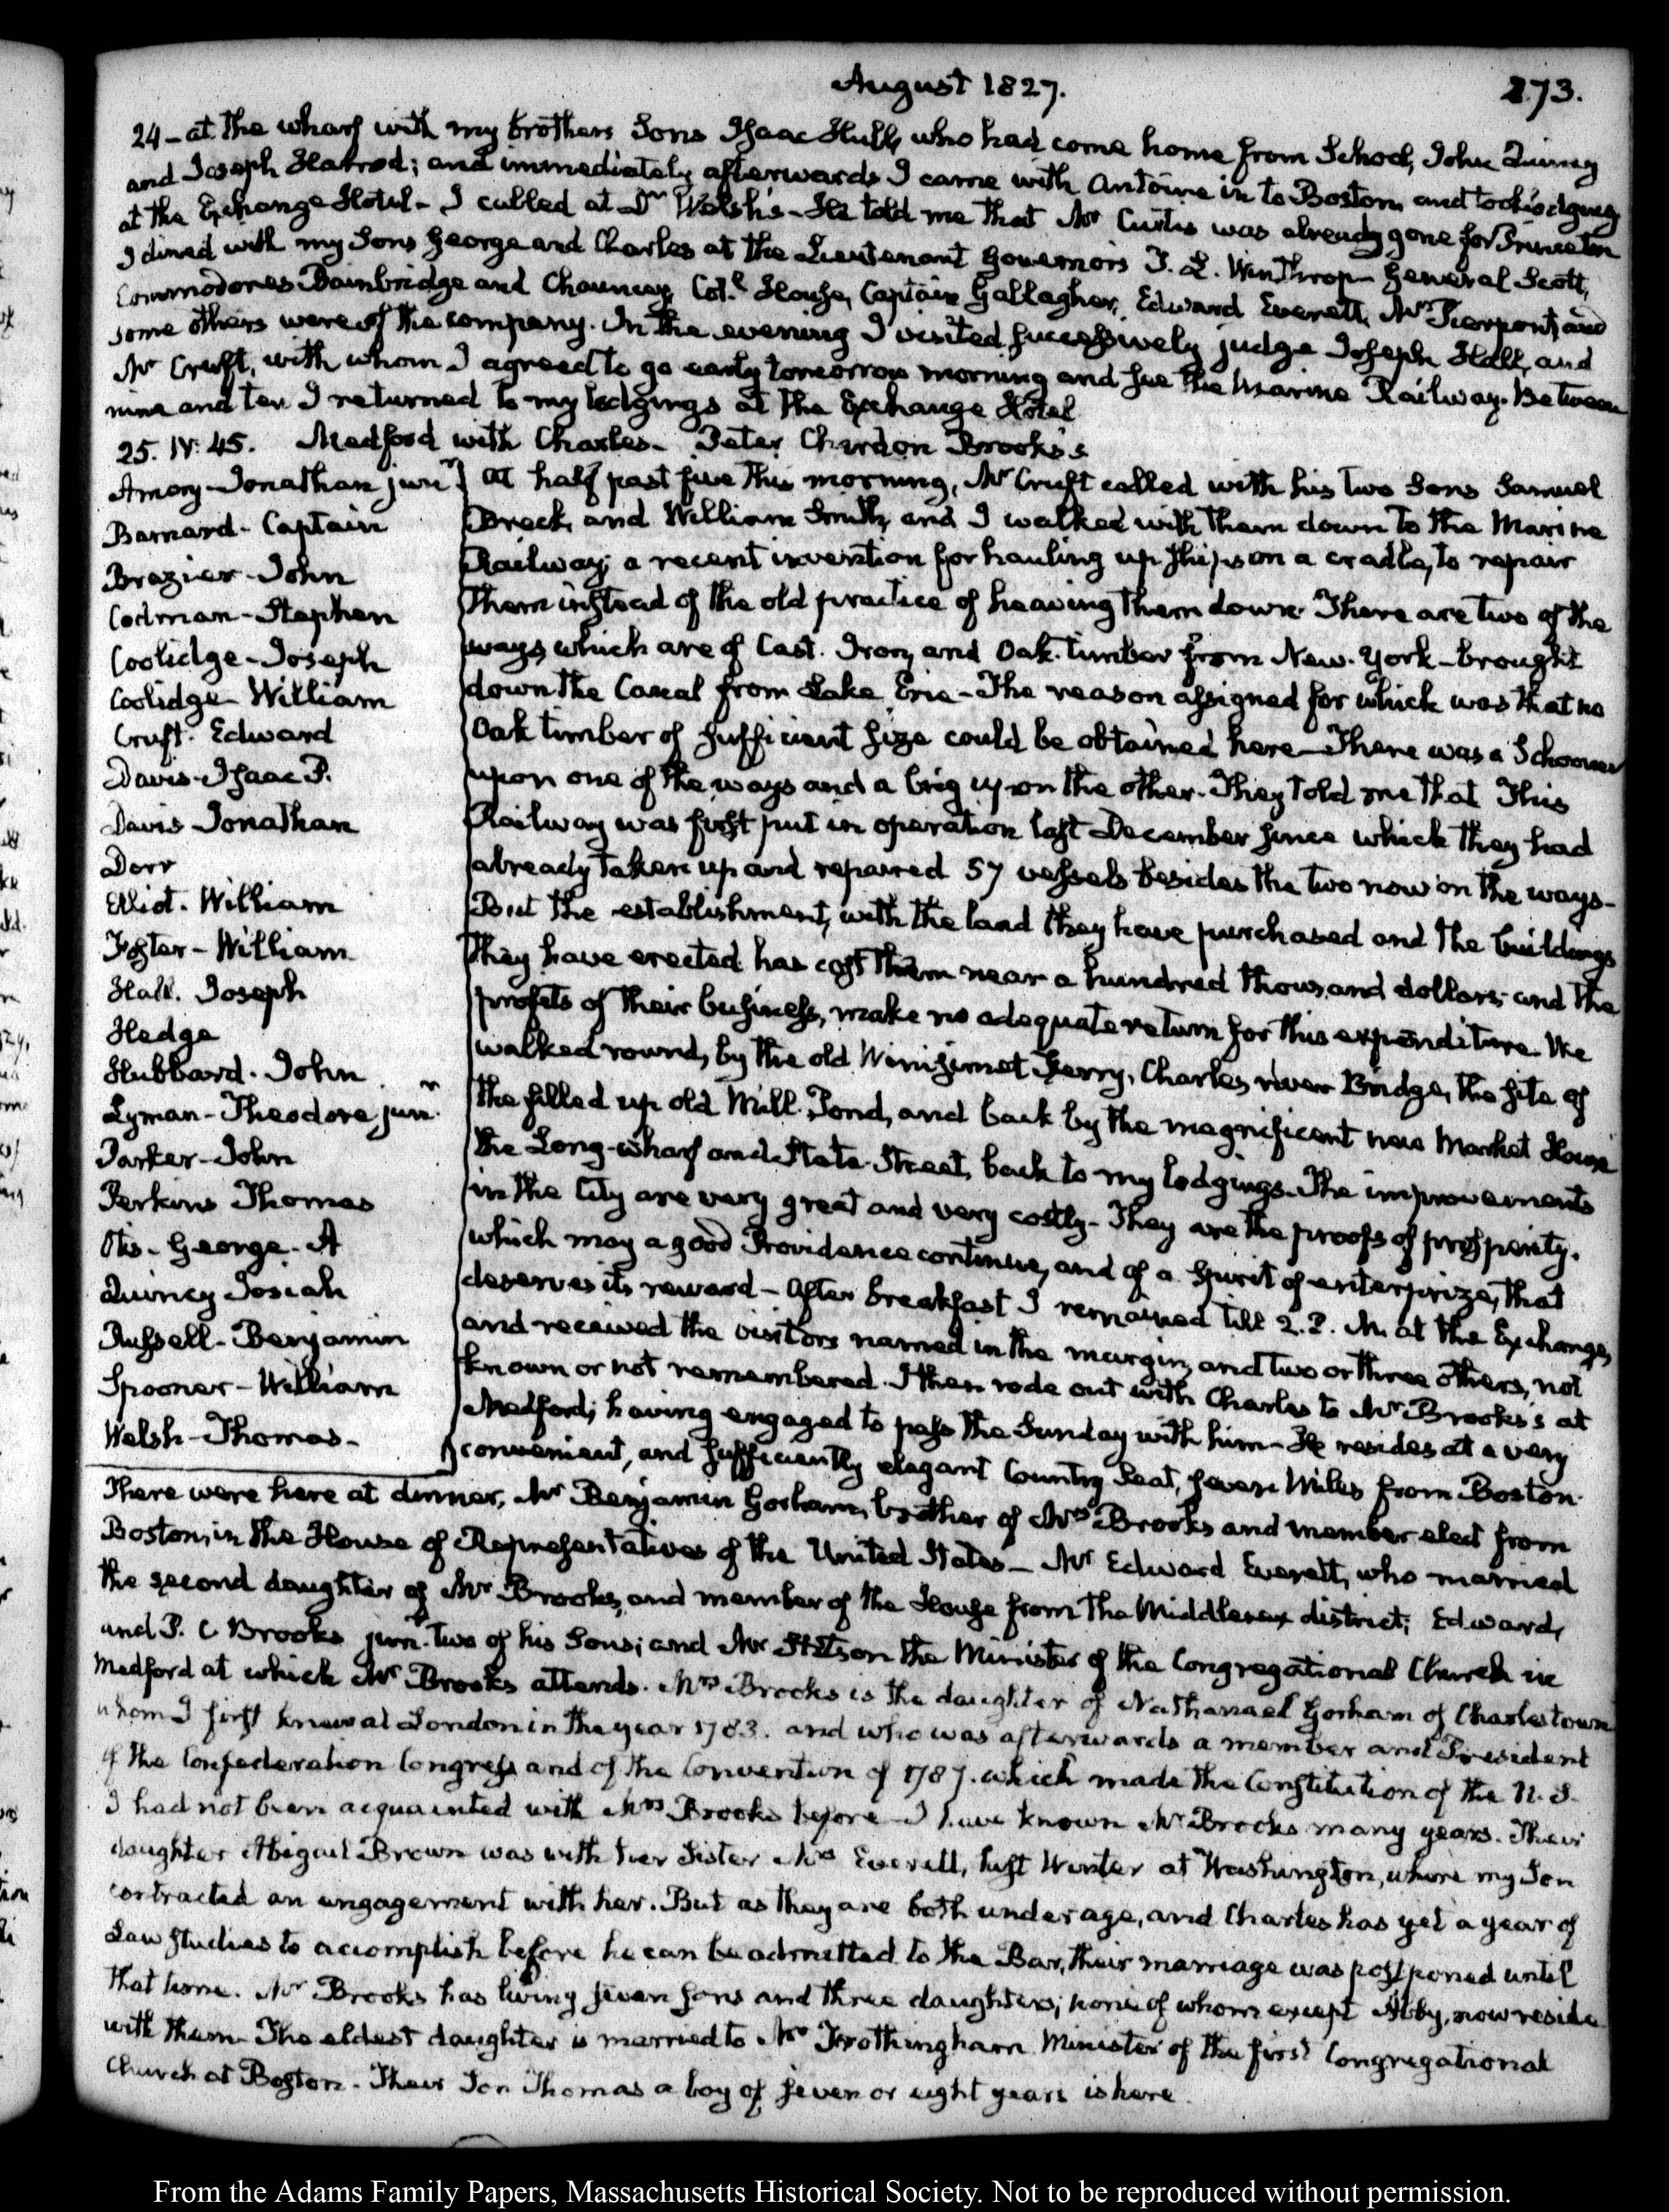 August 1827.
273.
24 - at the wharf with my brothers Sons Isaac Hull, who had come home from School, John Quincy
and Joseph Harrod; and immediately afterwards I came with Antoine in to Boston, and took lodgings
at the Exchange Hotel - I called at Dr Welsh's - He told me that Mr Curtis was already gone for Princeton
I dined with my Sons George and Charles at the Lieutenant Governors T. L. Winthrop - General Scott,
Commodores Bainbridge and Chauncey, Col.l House, Captain Gallagher, Edward Everett, Mr Pierpont, and
some others were of the company. In the evening I visited successively judge Joseph Hall, and
Mr Cruft, with whom I agreed to go early tomorrow morning and see the Marine Railway. Between
nine and ten I returned to my lodgings at the Exchange Hotel
25. IV: 45. Medford with Charles - Peter Chardon Brooks's
Amory - Jonathan junr
Barnard - Captain
Brazier - John
Codman - Stephen
Coolidge - Joseph
Coolidge - William
Cruft. Edward
Davis - Isaac P.
Davis Jonathan
Dorr
Eliot. William
Foster - William
Hall. Joseph
Hedge
Hubbard. John
Lyman - Theodore junr
Parker - John
Perkins Thomas
Otis - George - A
Quincy Josiah
Russell - Benjamin
Spooner - William
Welsh - Thomas -
At half past five this morning, Mr Cruft called with his two Sons Samuel
Breck, and William Smith, and I walked with them down to the Marine
Railway; a recent invention for hauling up ships on a cradle, to repair
them instead of the old practice of heaving them down. There are two of the
ways which are of Cast. Iron, and Oak. timber from New-York - brought
down the Canal from Lake Erie - The reason assigned for which was that no
Oak timber of sufficient size could be obtained here - There was a Schooner
upon one of the ways and a brig upon the other. They told me that this
Railway was first put in operation last December since which they had
already taken up and repaired 57 vessels besides the two now on the ways -
But the establishment, with the land they have purchased and the buildings
they have erected has cost them near a hundred thousand dollars; and the
profits of their business, make no adequate return for this expenditure. We
walked round, by the old Winisimet Ferry, Charles river Bridge, the site of
the filled up old Mill. Pond, and back by the magnificent new Market House
the Long-wharf and State-Street, back to my lodgings. The improvements
in the City are very great and very costly - They are the proofs of prosperity.
which may a good Providence continue, and of a Spirit of enterprize, that
deserves its reward - After breakfast I remained till 2. P. M. at the Exchange,
and received the visitors named in the margin, and two or three others, not
known or not remembered. I then rode out with Charles to Mr Brooks's at
Medford; having engaged to pass the Sunday with him - He resides at a very
convenient, and sufficiently elegant Country Seat, seven Miles from Boston.
There were here at dinner, Mr Benjamin Gorham, brother of Mrs Brooks and member elect from
Boston, in the House of Representatives of the United States - Mr Edward Everett, who married
the second daughter of Mr Brooks, and member of the House from the Middlesex district; Edward,
and P. C Brooks junr. two of his Sons; and Mr Stetson the Minister of the Congregational Church in
Medford at which Mr Brooks attends. Mrs Brooks is the daughter of Nathanael Gorham of Charlestown
whom I first knew at London in the year 1783. and who was afterwards a member and President
of the Confederation Congress and of the Convention of 1787. which made the Constitution of the U. S.
I had not been acquainted with Mrs Brooks before - I have known Mr Brooks many years. Their
daughter Abigail Brown was with her Sister Mrs Everett, last Winter at Washington, where my Son
contracted an engagement with her. But as they are both under age, and Charles has yet a year of
Law studies to accomplish before he can be admitted to the Bar, their marriage was postponed until
that time. Mr Brooks has living seven sons and three daughters; none of whom except Abby, now reside
with them - The eldest daughter is married to Mr Frothingham Minister of the first Congregational
Church at Boston - Their Son Thomas a boy of seven or eight years is here.
From the Adams Family Papers, Massachusetts Historical Society. Not to be reproduced without permission.